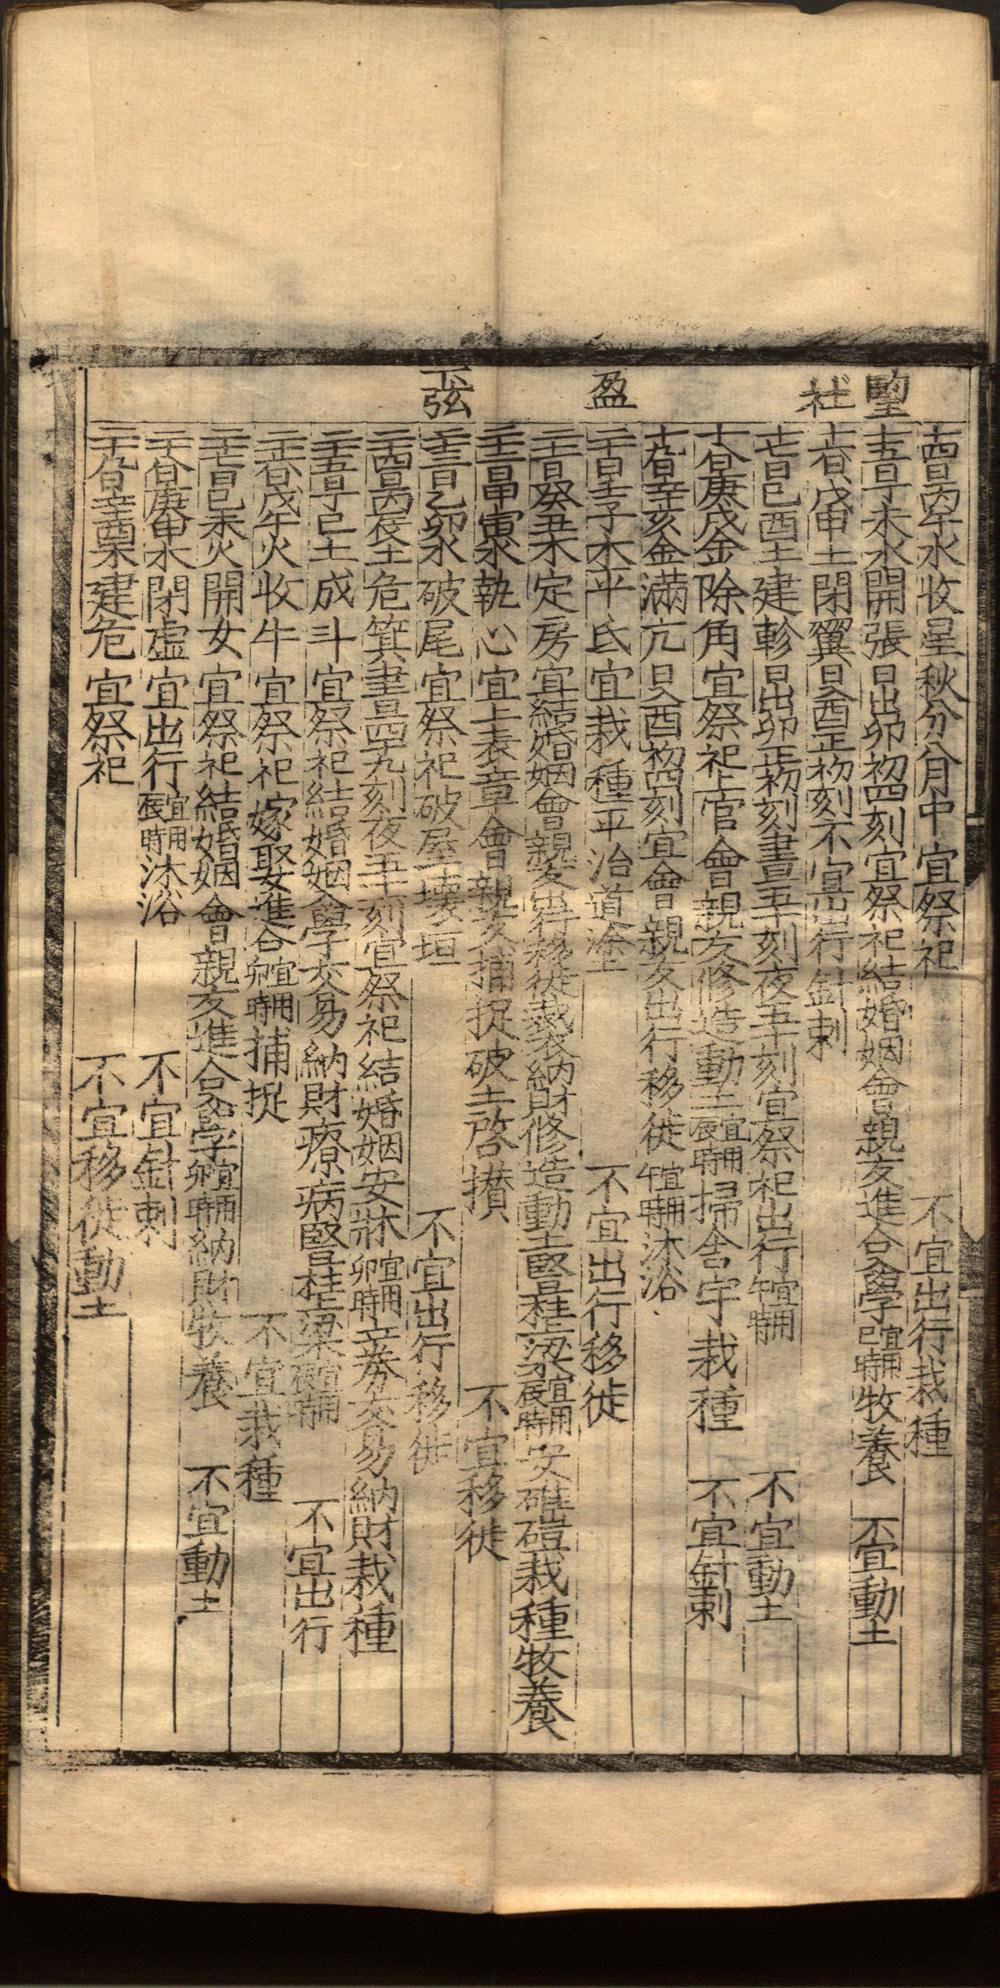 望
社
盈
下弦
十四日丙午水收星秋分八月中宜祭祀 不宜出行栽種
十五日丁未水開張日出卯初四刻宜祭祀結婚姻會親友進人口入學宜用巳時牧養 不宜動土
十六日戊申土閉翼日入酉正初刻不宜出行針刺
十七日己酉土建軫日出卯正初刻晝五十刻夜五十刻宜祭祀出行宜用午時 不宜動土
十八日庚戌金除角宜祭祀上官會親友修造動土宜用辰時掃舍宇栽種 不宜針刺
十九日辛亥金滿亢日入酉初四刻宜會親友出行移徙宜用午時沐浴
二十日壬子木平氐宜栽種平治道塗 不宜出行移徙
二十一日癸丑木定房宜結婚姻會親友出行移徙裁衣納財修造動土豎柱上梁宜用辰時安碓磑栽種牧養
二十二日甲寅水執心宜上表章會親友捕捉破土啓攢 不宜移徙
二十三日乙卯水破尾宜祭祀破屋壞垣 不宜出行移徙
二十四日丙辰土危箕晝四十九刻夜五十一刻宜祭祀結婚姻安牀宜用卯時立券交易納財栽種
二十五日丁巳土成斗宜祭祀結婚姻入學交易納財療病豎柱上梁宜用辰時 不宜出行
二十六日戊午火收牛宜祭祀嫁娶進人口宜用卯時捕捉 不宜栽種
二十七日己未火開女宜祭祀結婚姻會親友進人口入學宜用卯時納財牧養 不宜動土
二十八日庚申木閉虛宜出行宜用辰時沐浴 不宜針刺
二十九日辛酉木建危宜祭祀 不宜移徙動土